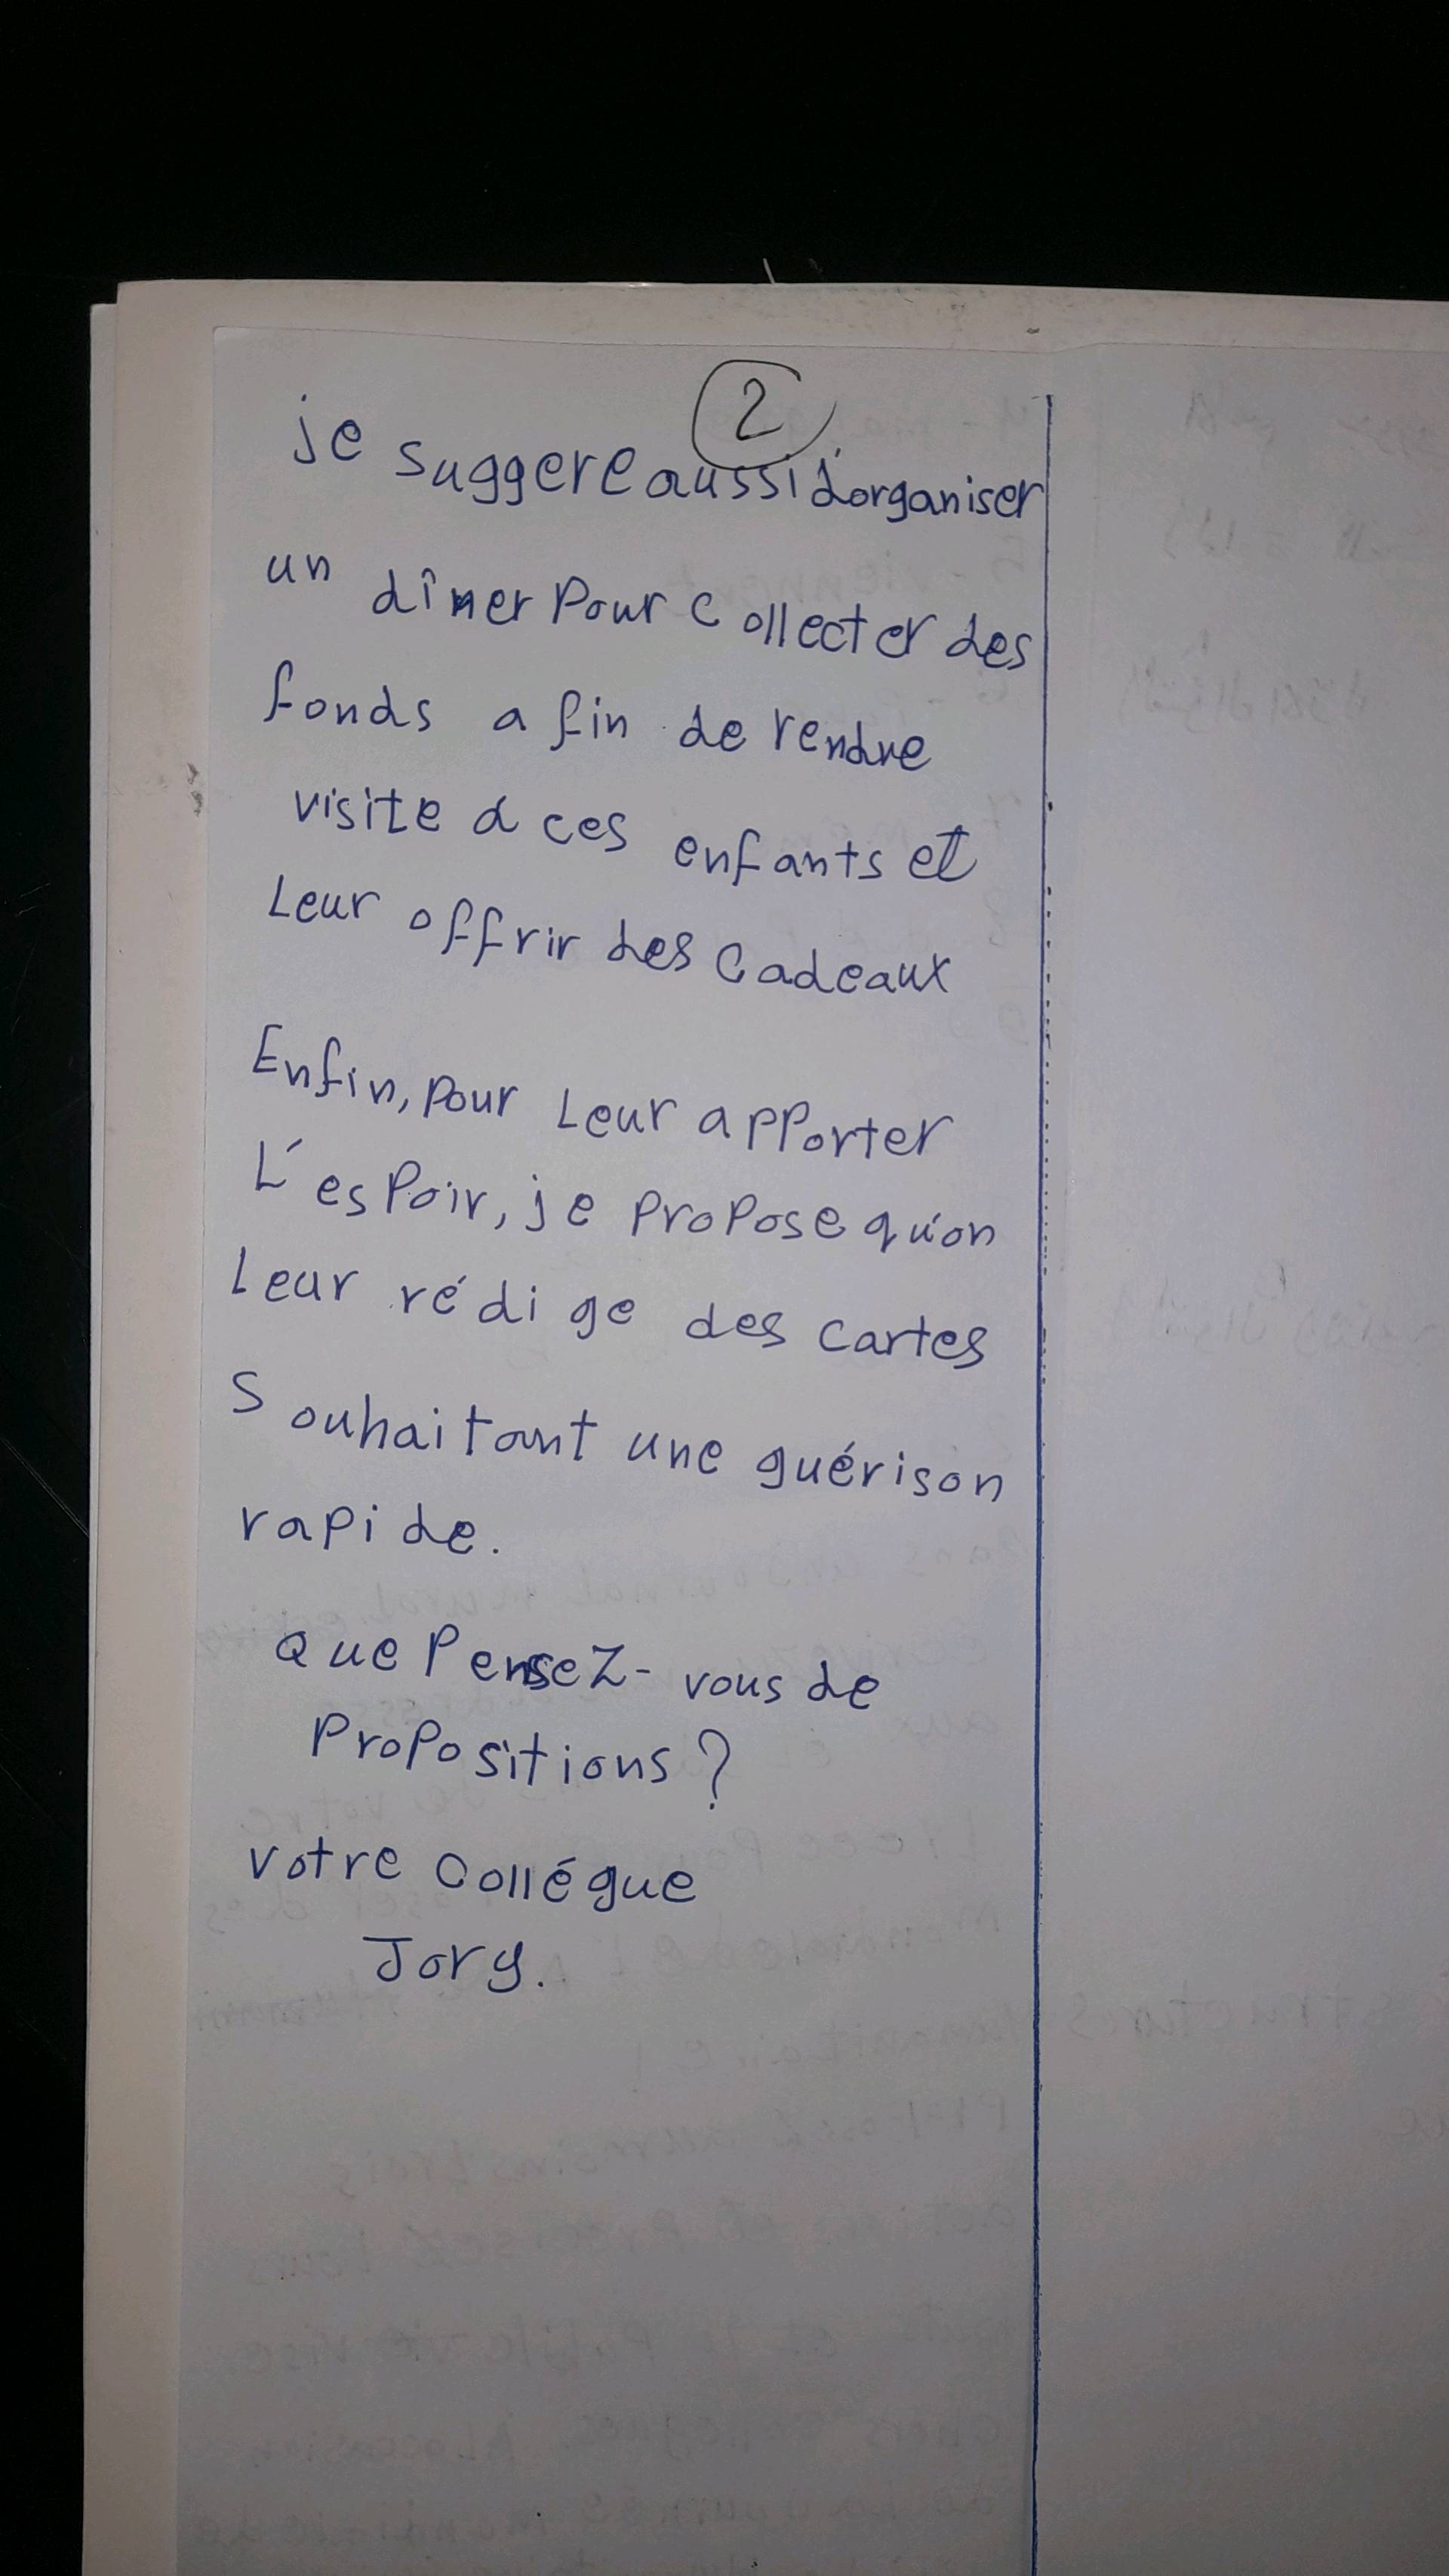 2
je suggere aussi d'organiser
un dîner pour collecter des
fonds a fin de rendre
visite à ces enfants et
Leur offrir des cadeaux
Enfin, pour Leur apporter
L'espoir, je propose qu'on
Leur rédige des cartes
Souhaitant une guérison
rapide.
Que Pensez-vous de
Propositions ?
votre collégue
Jory.